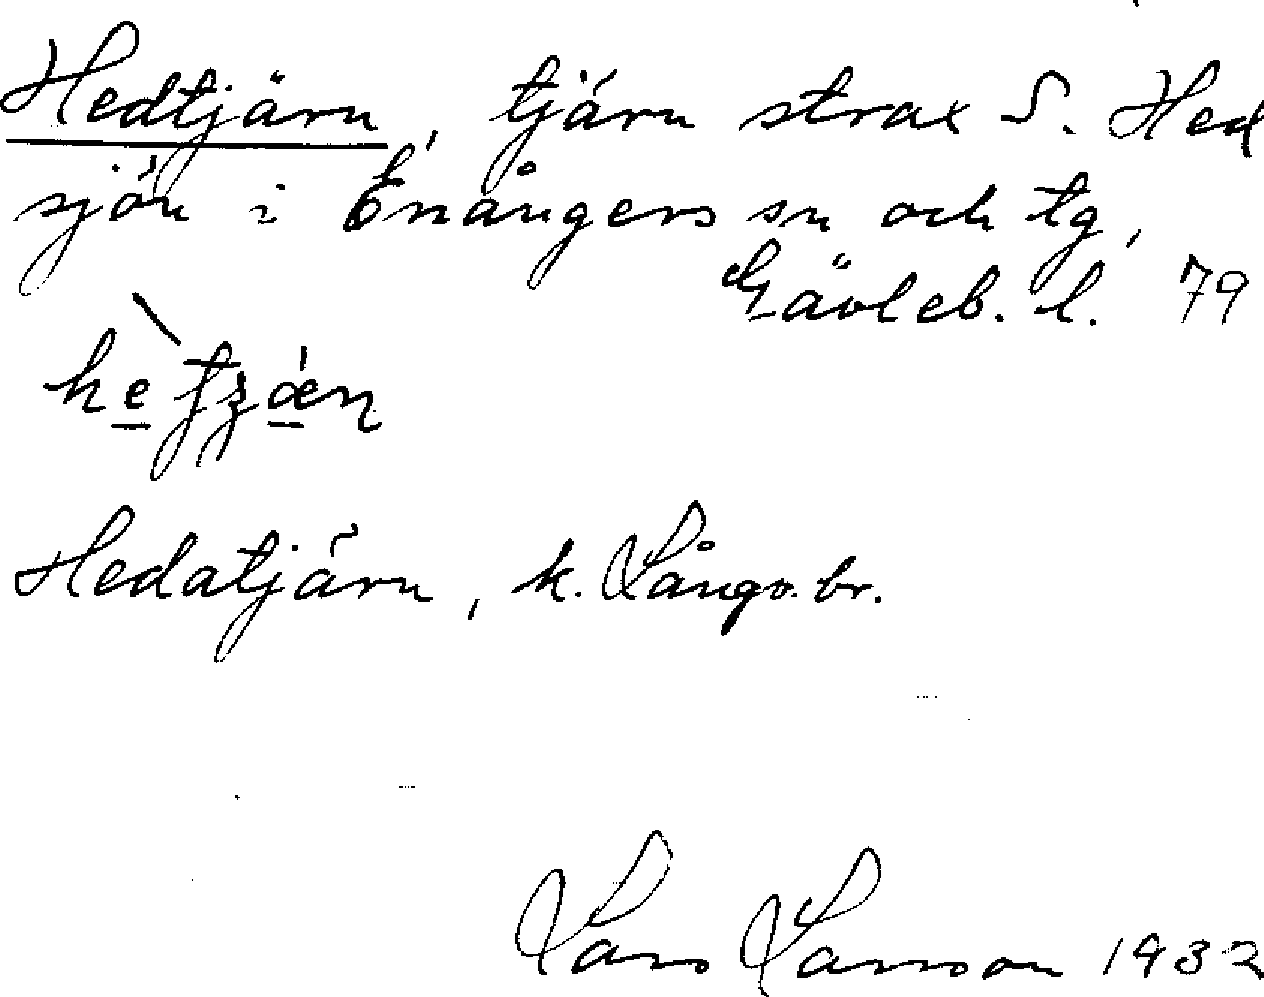 Hedtjärn, tjärn strax S. Hed
sjön i Enångers sn och tg,
Gävleb. l. 79
Hedatjärn, k. Långv. br.
Lars Larsson 1932